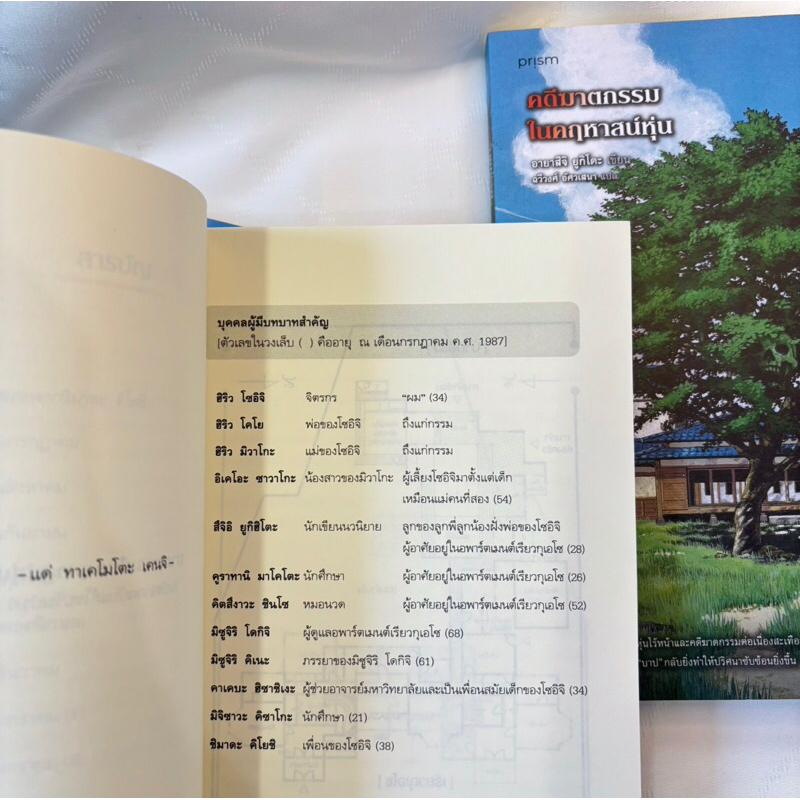 prism
คดีฆาตกรรม
ในคฤหาสน์หุ่น
อายาสึจิ ยูกิโตะ เขียน
ฉวีวงศ์ อัศวเสนา แปล
สารบัญ
-แด่ ทาเคโมโตะ เคนจิ-
บุคคลผู้มีบทบาทสำคัญ
[ตัวเลขในวงเล็บ ( ) คืออายุ ณ เดือนกรกฎาคม ค.ศ. 1987]
ฮิริว โซอิจิ จิตรกร “ผม” (34)
ฮิริว โคโย พ่อของโซอิจิ ถึงแก่กรรม
ฮิริว มิวาโกะ แม่ของโซอิจิ ถึงแก่กรรม
อิเคโอะ ซาวาโกะ น้องสาวของมิวาโกะ ผู้เลี้ยงโซอิจิมาตั้งแต่เด็ก
เหมือนแม่คนที่สอง (54)
สึจิอิ ยูกิฮิโตะ นักเขียนนวนิยาย ลูกของลูกพี่ลูกน้องฝั่งพ่อของโซอิจิ
ผู้อาศัยอยู่ในอพาร์ตเมนต์เรียวกุเอโซ (28)
คูราทานิ มาโคโตะ นักศึกษา ผู้อาศัยอยู่ในอพาร์ตเมนต์เรียวกุเอโซ (26)
คิตสึงาวะ ชินโซ หมอนวด ผู้อาศัยอยู่ในอพาร์ตเมนต์เรียวกุเอโซ (52)
มิซูจิริ โดกิจิ ผู้ดูแลอพาร์ตเมนต์เรียวกุเอโซ (68)
มิซูจิริ คิเนะ ภรรยาของมิซูจิริ โดกิจิ (61)
คาเคบะ ฮิซาชิเงะ ผู้ช่วยอาจารย์มหาวิทยาลัยและเป็นเพื่อนสมัยเด็กของโซอิจิ (34)
มิจิซาวะ คิซาโกะ นักศึกษา (21)
ชิมาดะ คิโยชิ เพื่อนของโซอิจิ (38)
หุ่นไร้หน้าและคดีฆาตกรรมต่อเนื่องสะเทือ
"บาป" กลับยิ่งทำให้ปริศนาซับซ้อนยิ่งขึ้น